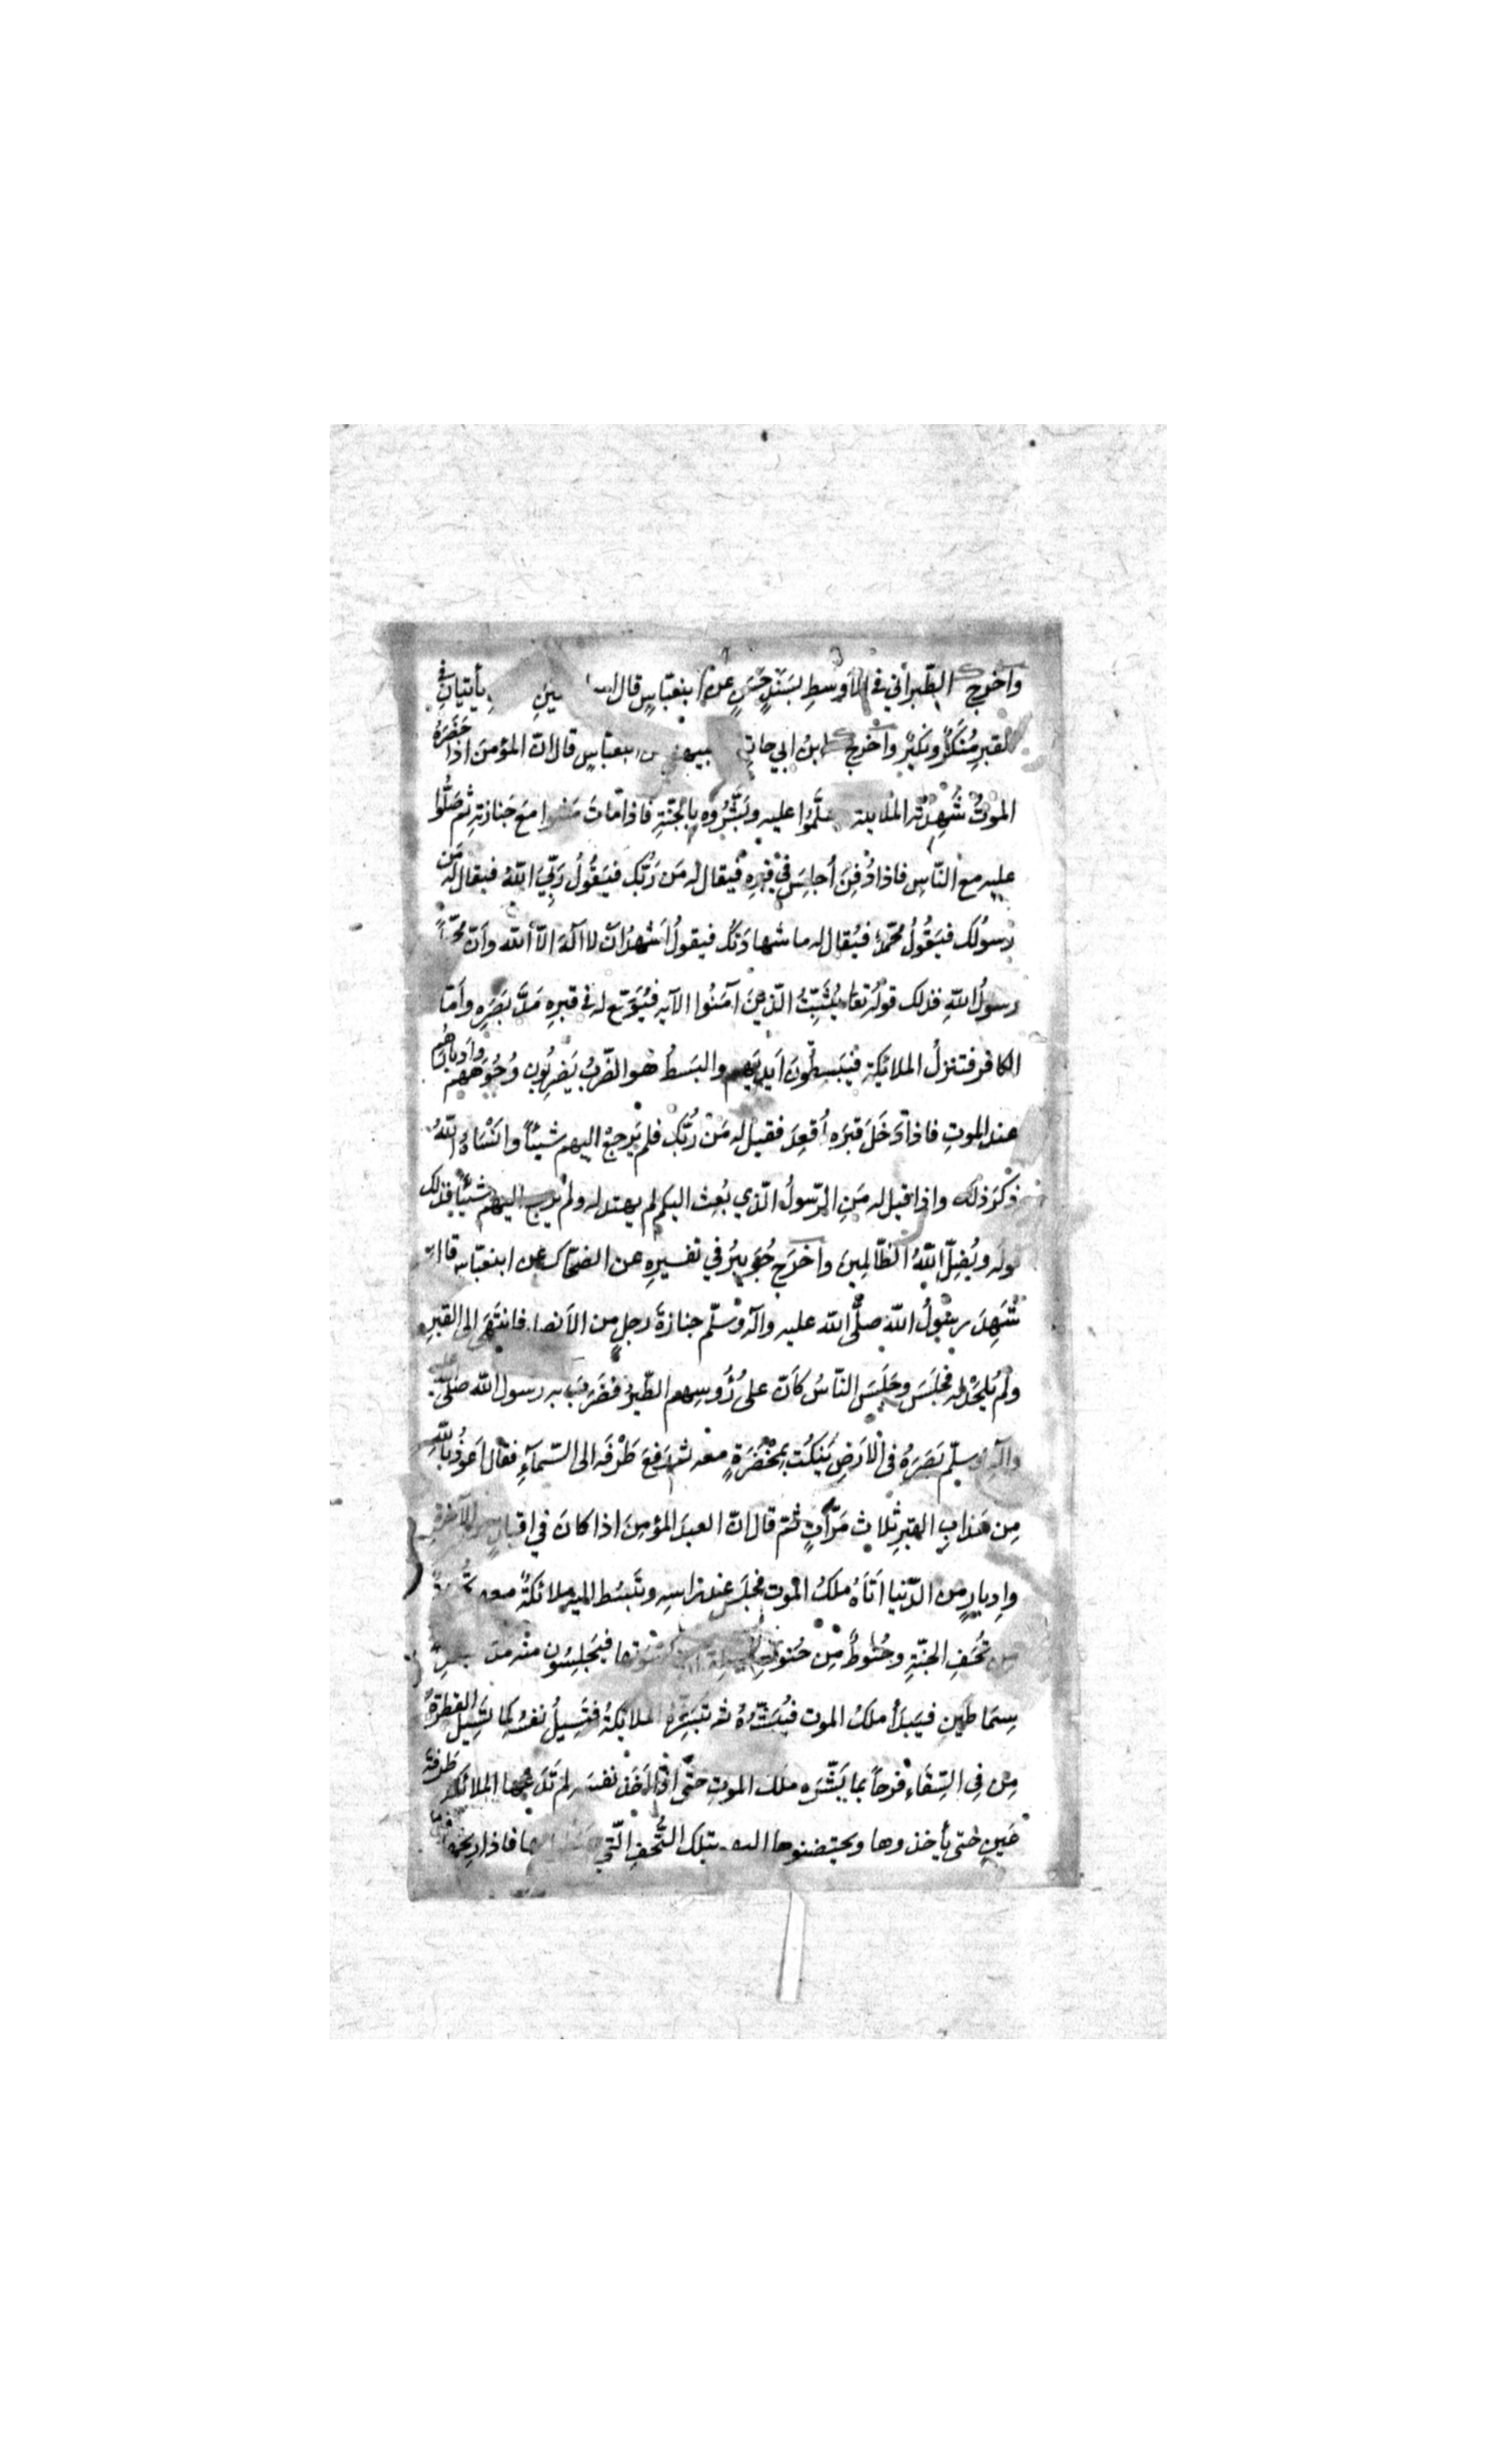 واخرج الطبراني في الأوسطِ بسَندٍ حَسَنٍ عن ابنعبّاسٍ قال يأتيانِ في
القبرِ مُنكَرٌ ونكيرٌ واخرج ابنُ ابي حاتم ابنعباسٍ قال انّ المؤمنَ اذا حَضَرَهُ
الموتُ شُهِدَتْه الملايكة سلَّمُوا عليه وبَشَّرُوه بالجَنّةِ فاذا مّاتَ مَشَوا مَعَ جَنازتِهِ ثمّ صَلُّوا
عليه مع النّاسِ فاذا دُفِنَ أُجلِسَ في قبرِه فيقال له مَن رَبُّك فيَقُولُ رَبِّيَ اللهُ فيقال له مَن
رسولُك فيَقُولُ مُحمّدٌ فيُقال له ما شهادَتُك فيقولُ أشهدُ ان لا اله الّا الله وأنّ محمّداً
رسولُ اللهِ فذلك قولُه تعالى يُثَبِّتُ الّذينَ آمَنُوا الآية فيُوَسَّع له في قبرِهِ مَدَّ بَصَرِهِ وأمّا
الكافر فتنزلُ الملائيكة فيَبسطُونَ أيديَهم والبَسطُ هو الضّربُ يَضرِبُون وُجُوهَهم وأدبارَهُم
عند الموتِ فاذا دَخَلَ قبرَه أُقعِدَ فقيل له مَن رَّبُّك فلم يَرجِعْ اليهم شيئاً وأنْسَاهُ اللهُ
ذكرَ ذلكَ واذا قيل له مَنِ الرّسولُ الّذي بُعِث اليكم لم يهتد له ولم يرجع اليهم شيئاً فذلك
قوله ويُضِلّ اللهُ الظّالِمينَ واخرَج جُوَيبِرُ في تفسيرِه عن الضحّاك عن ابنعبّاس قال
شَهِدَ رسُولُ الله صلَّى الله عليه وآله وسلّم جنازةَ رجلٍ من الأنصار فانتَهَى الى القبرِ
ولم يُلحَدْ له فجَلَسَ وجَلَسَ النّاسُ كأنّ على رُؤوسِهم الطّيرُ فضَرَبَ به رسول الله صلّى الله عليه
وآله وسلّم بَصَرَهُ في الأرضِ يَنكُت بِمِخْصَرَةٍ معه ثم رَفعَ طَرْفَه الى السّماءِ فقال أعوذُ باللهِ
مِن عَذابِ القبرِ ثلاث مَرّاتٍ ثمّ قال انّ العبدَ المؤمِنَ اذا كانَ في اقبالٍ من الآخرةِ
وإدبارٍ من الدّنيا أتَاهُ ملَكُ الموت فجلَسَ عند راسِهِ وتَبسُط اليه ملائكةٌ معه
من تُحَفِ الجنّةِ وحَنُوطٌ مِن حَنُوطِ فيَجلِسُون منه مدّ بصرِهِ
سِمَاطَينِ فيَبدَأ ملكُ الموت فيُبَشّرُهُ ثم تبَشّرُهُ الملايكةُ فتَسِيلُ نفسُه كما تَسِيلُ القَطرَةُ
مِن فِي السِّقَاءِ فرَحاً بما بَشَّرَه ملَك الموتِ حتّى اذا أخَذ نفسَه لم تَدَعْها الملائكة طَرْفةَ
عَينٍ حتى يأخذوها ويحتضنوها اليه بتلك التُّحَفِ الّتي فاذا رِيحُها